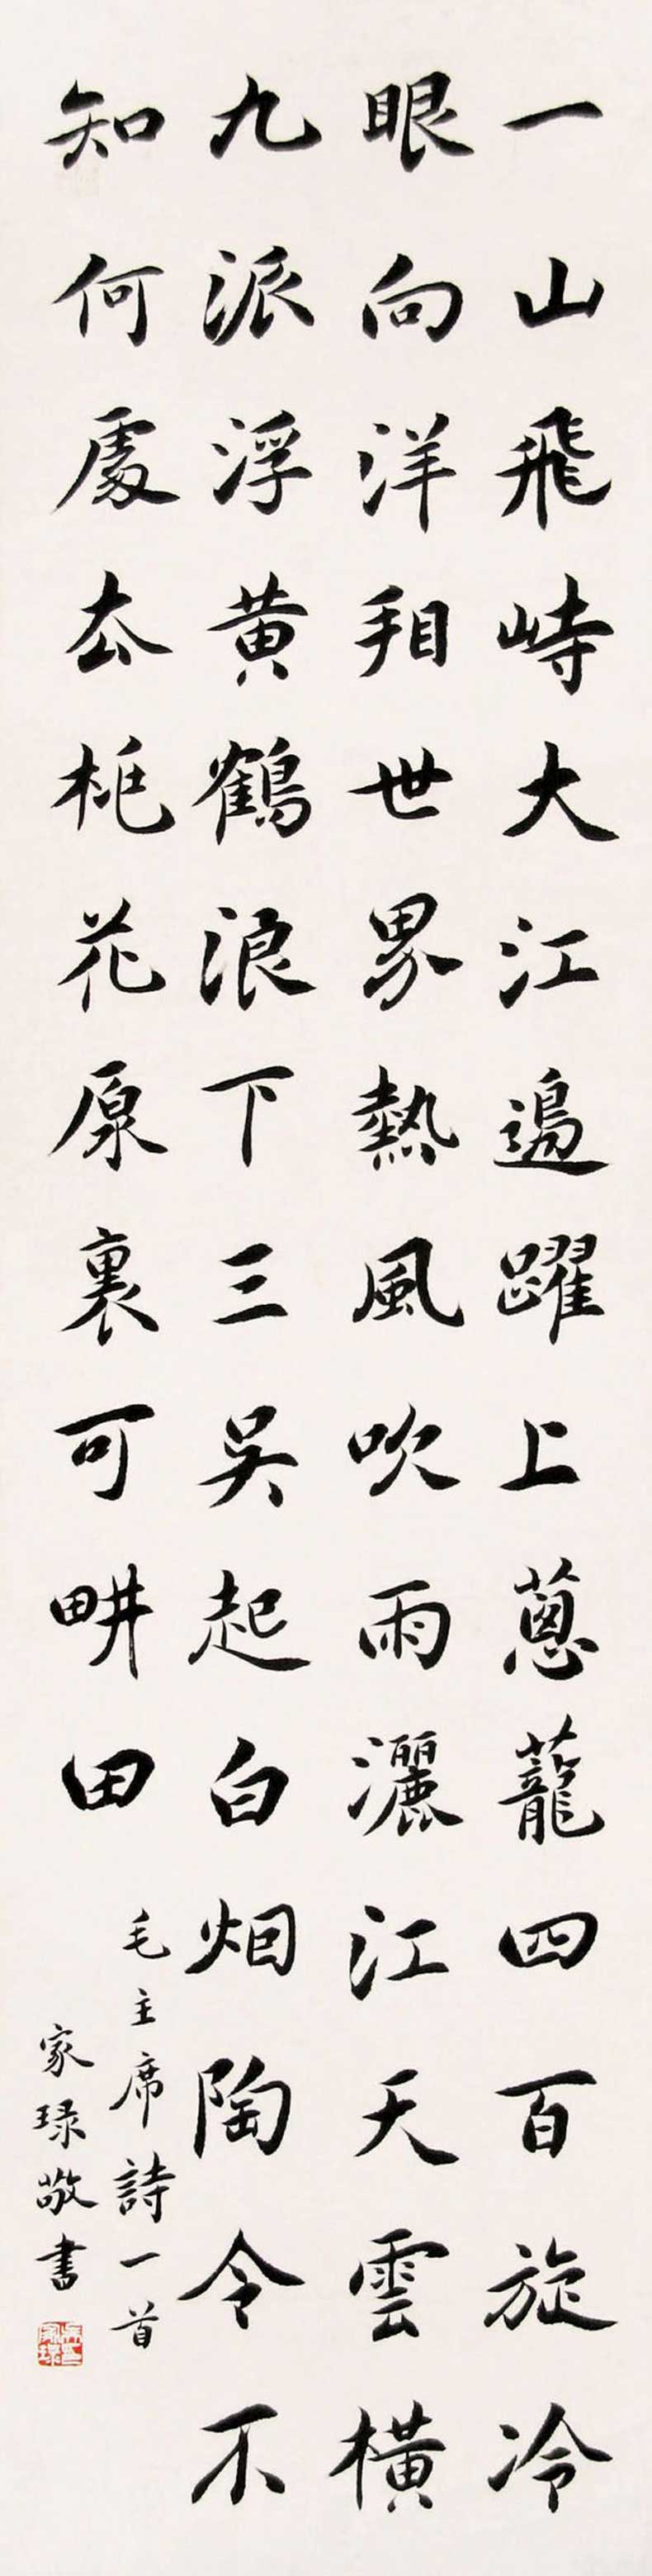 一山飛峙大江邊躍上蔥蘢四百旋冷
眼向洋看世界熱風吹雨灑江天雲橫
九派浮黄鶴浪下三吳起白烟陶令不
知何處去桃花原裏可畊田
毛主席詩一首
家琭敬書